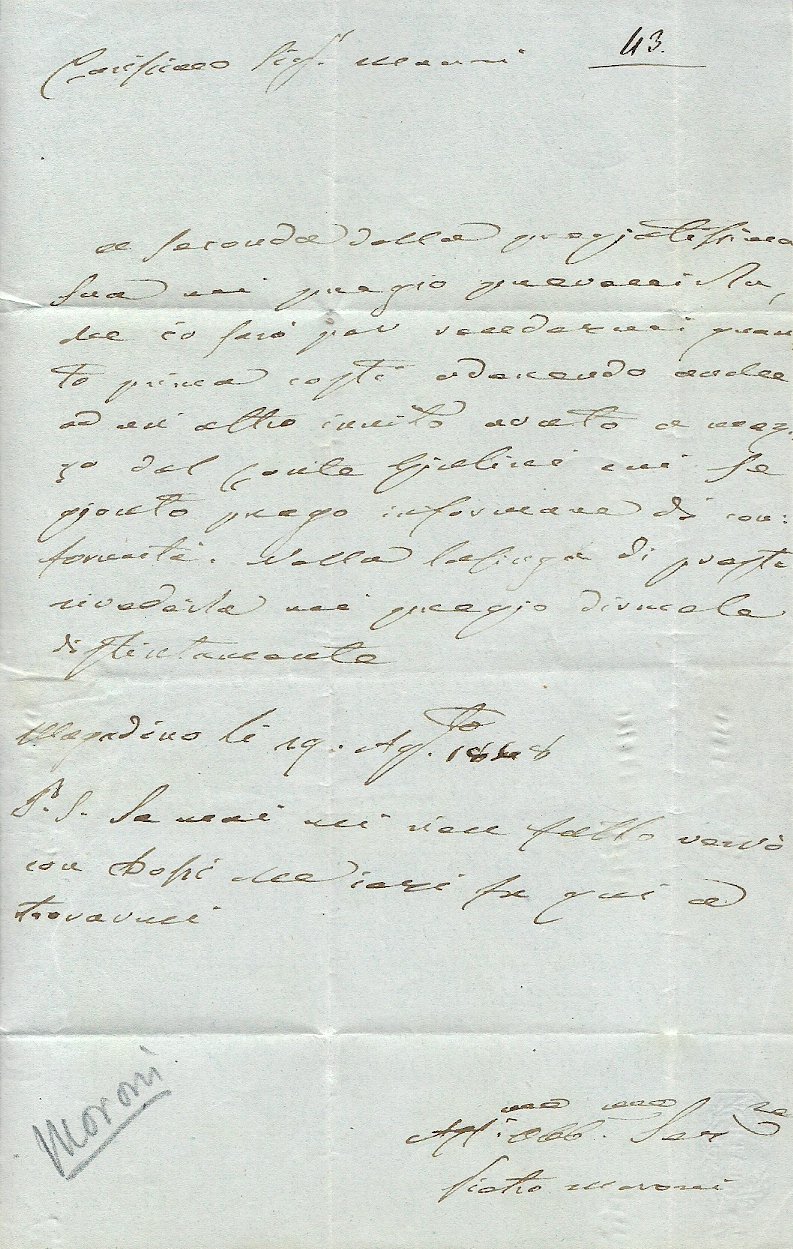 43.
Carissimo Sig.r
a seconda della pregiatissima
sua mi pregio prevenirla,
che io farò per rendermi quan
to prima costì aderendo anche
ad un altro invito avuto a mez
zo del Conte Giulini mi fe
prego informare di con:
formità. Nella lusinga di presto
rivederla mi pregio dirmele
distintamente
Magadino li 19. Ag.to 1848
P.S. Se mai mi vien fatto verrò
con che ieri fu qui a
trovarmi
Aff.mo Obb.mo Ser.re
Pietro Moroni
Moroni